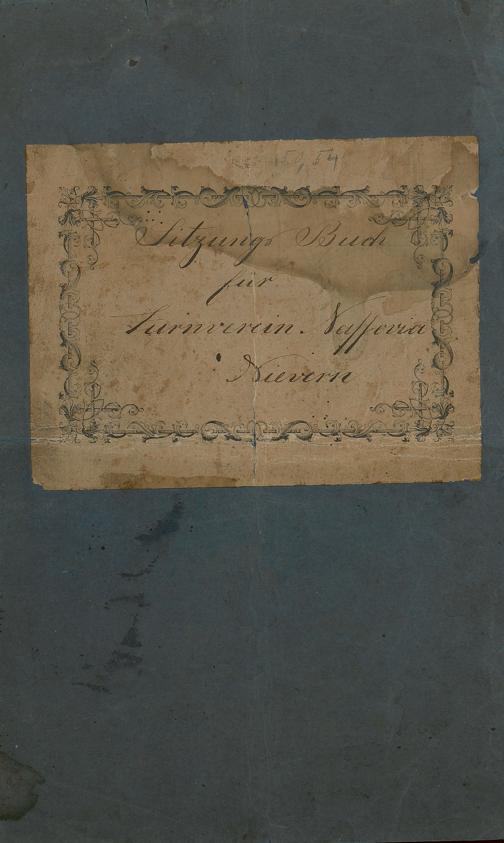 Sitzungs Buch
für
Turnverein Nassovia
Nievern